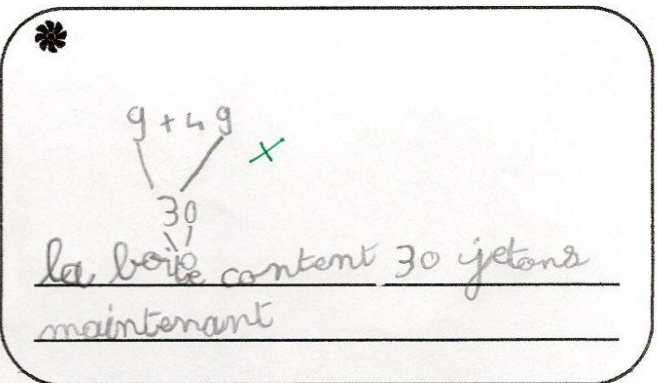 9 + 4 9
30
la boite content 30 jetons
maintenant